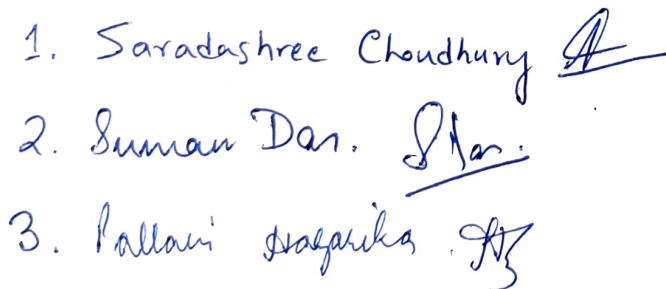 1. Saradashree Choudhury
2. Suman Das. SDas.
3. Pallavi Hazarika